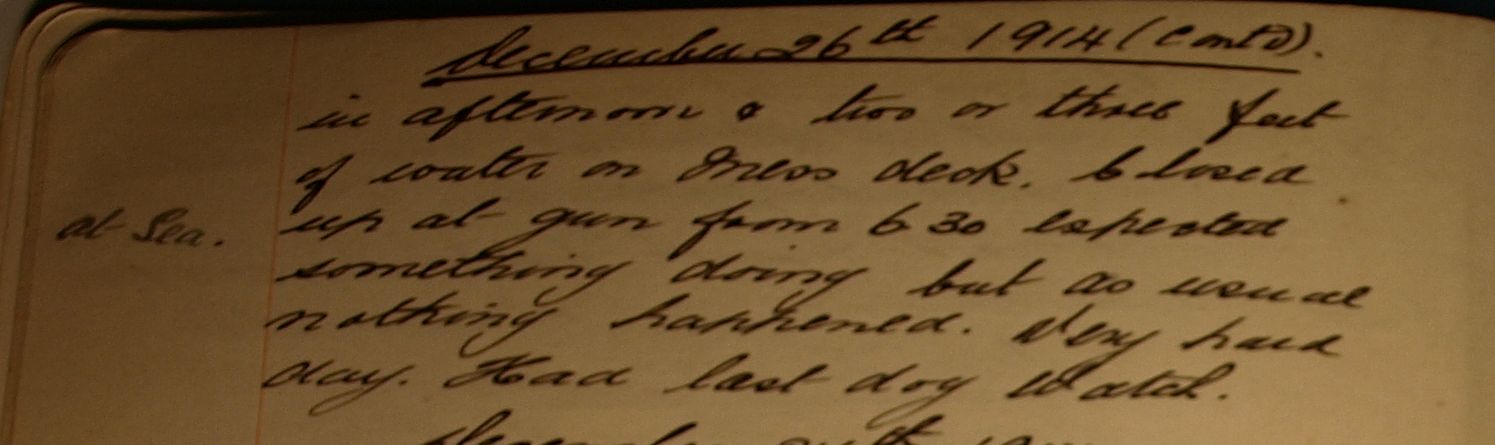 December 26th 1914 (Contd).
in afternoon & two or three feet
of water on Mess deck. Closed
at Sea.
up at gun from 6 30 expected
something doing but as usual
nothing happened. Very hard
day. Had last dog Watch.
December 27th 1914